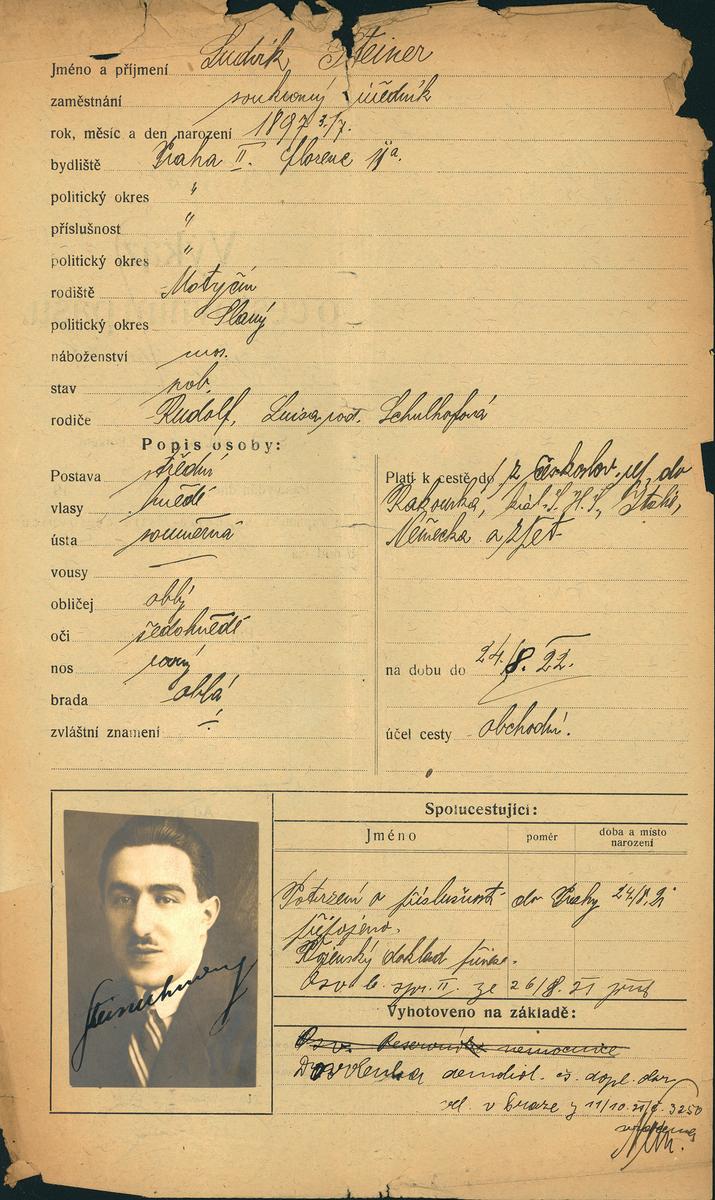 Jméno a příjmení Ludvík Steiner
zaměstnání soukromý úředník
rok, měsíc a den narození 1897 3./7.
bydliště Praha II. Florenc
politický okres "
příslušnost "
politický okres "
rodiště Motyčín
politický okres Slaný
náboženství mos.
stav svob.
rodiče Rudolf, Luisa roz. Schulhofová
Popis osoby:
Postava střední
vlasy hnědé
ústa souměrná
vousy —
obličej oblý
oči šedohnědé
nos rovný
brada oblá
zvláštní znamení ÷
Platí k cestě do z českoslov. rep. do
Rakouska, král. S. H. S., Italie,
Německa a zpět
na dobu do 24./8. 22.
účel cesty obchodní.
Spolucestující:
Jméno poměr doba a místo
narození
Potvrzení o příslušnosti do Prahy 24/8.21
připojeno.
Vojenský doklad
26/8. 21
Vyhotoveno na základě:
nemocnice
dopl.
vel. v Praze z 11/10.21 č. 3250